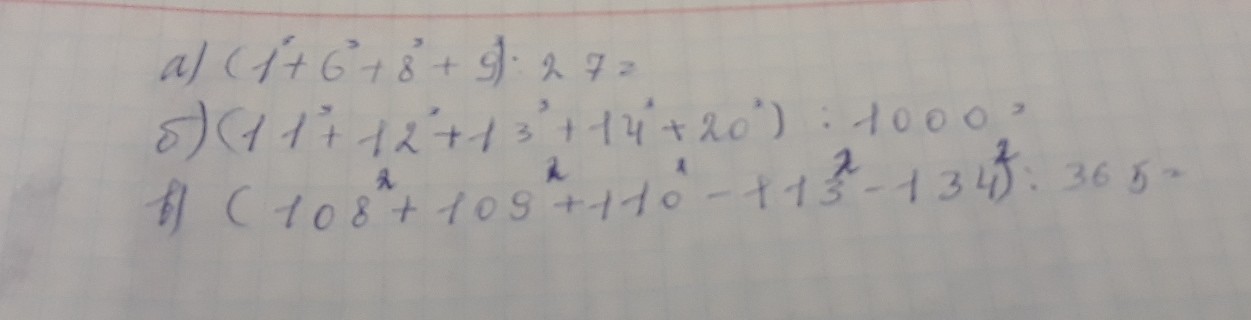 а) (1³+6³+8³+9³): 27=
б) (11³+12³+13³+14³+20³) : 1000=
в) (108²+109²+110²-113²-134²): 365=